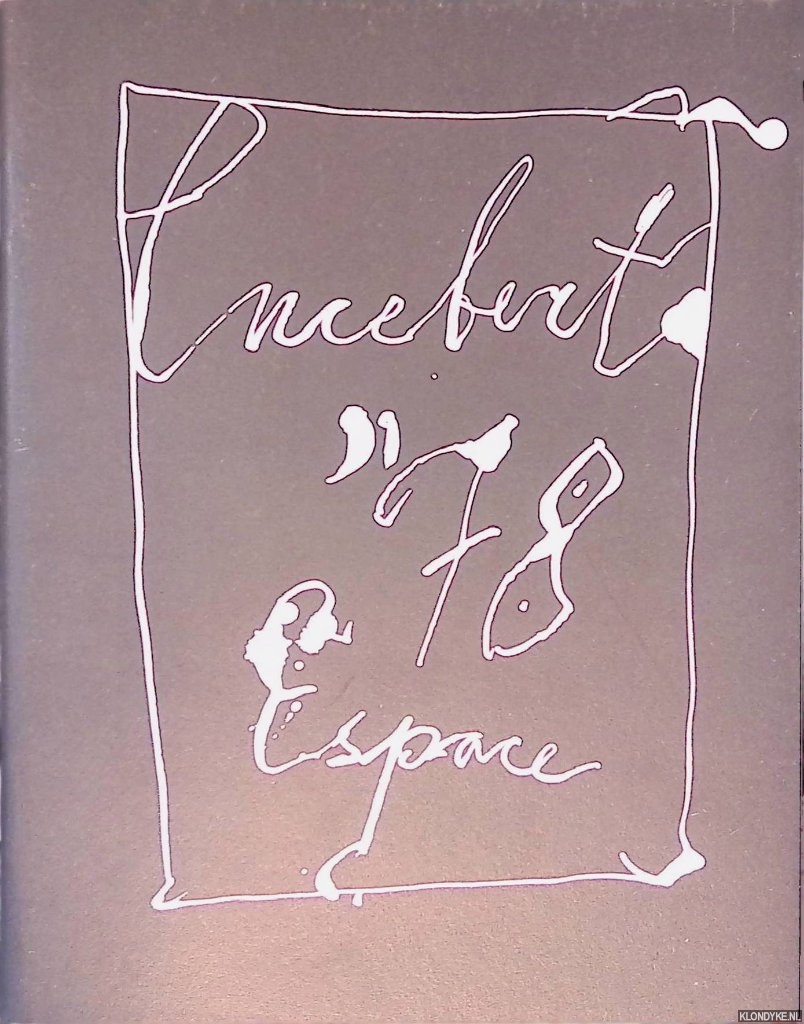 Lucebert
"78
Espace
KLONDYKE.NL